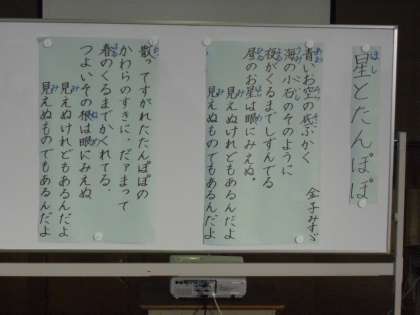 星とたんぽぽ
ほし
金子みすゞ
青いお空の底ふかく
海の小石のそのように
夜がくるまでしずんでる
昼のお星は眼にみえぬ。
見えぬけれどもあるんだよ
見えぬものでもあるんだよ
散ってすがれたたんぽぽの
かわらのすきに、だァまって
春のくるまでかくれてる、
つよいその根は眼にみえぬ
見えぬけれどもあるんだよ
見えぬものでもあるんだよ